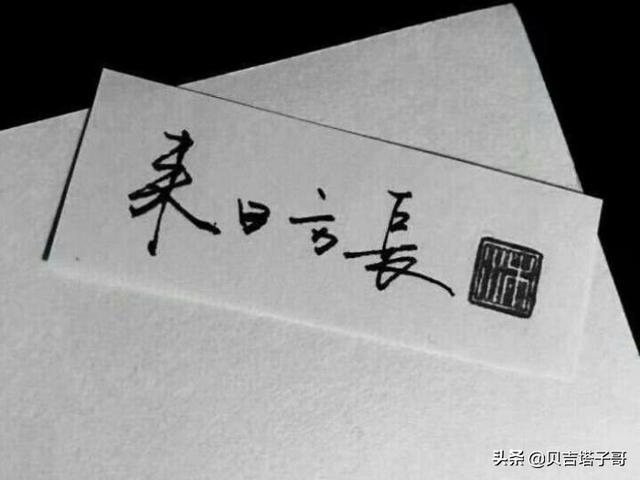 来日方長
头条 @贝吉塔子哥